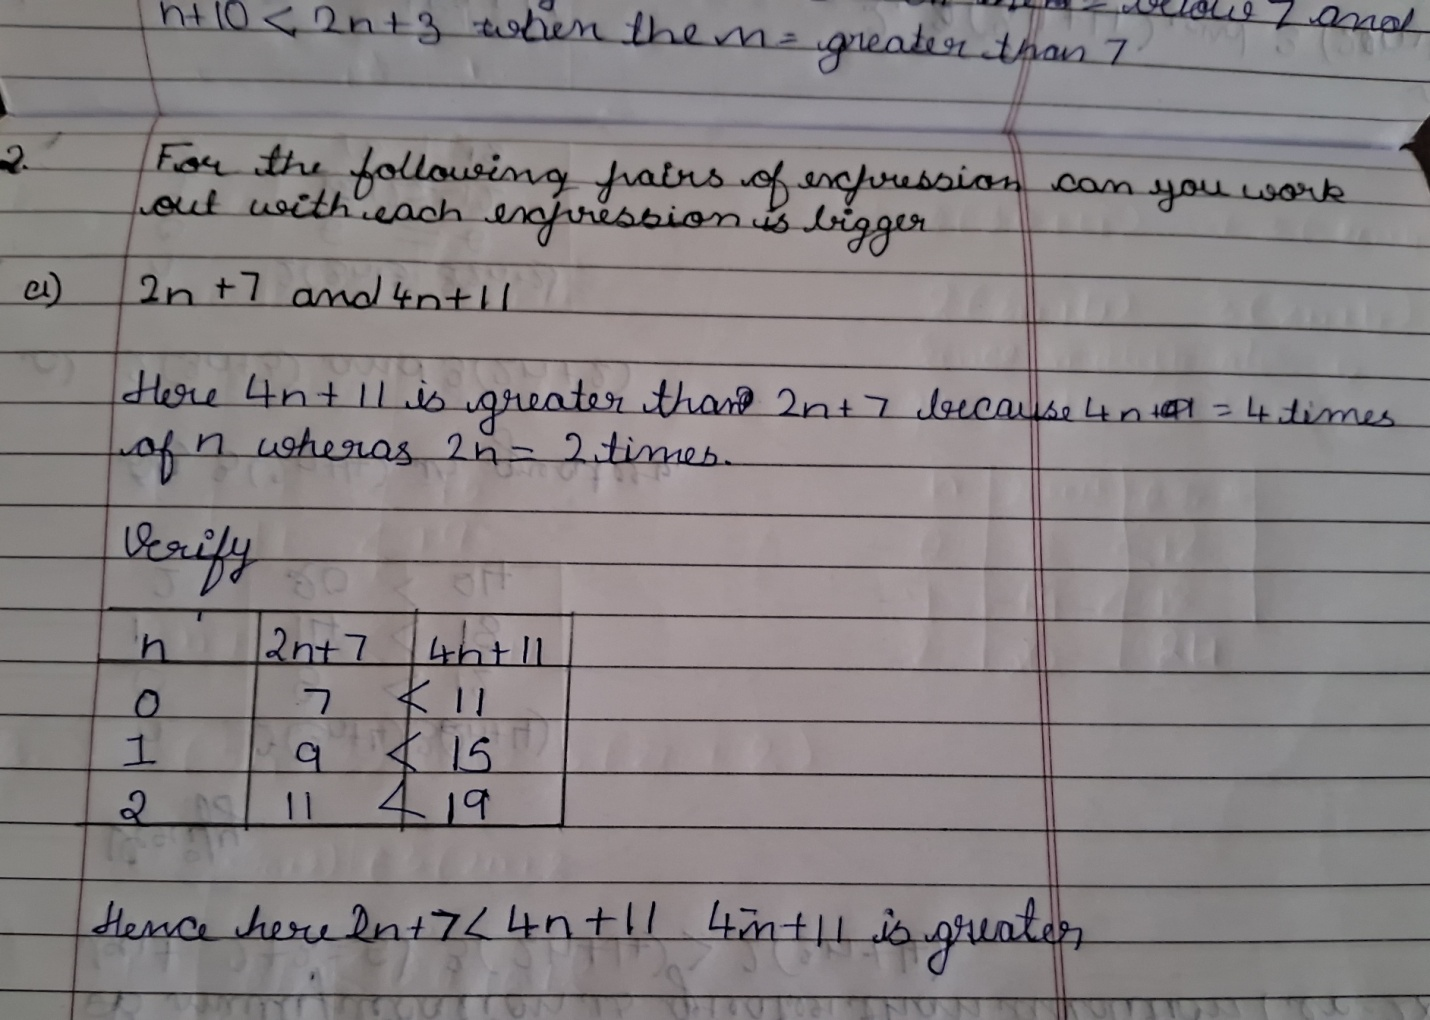 n+10 < 2n+3 when the n = greater than 7
2. For the following pairs of expression can you work
out with each expression is bigger
a) 2n +7 and 4n+11
Here 4n+11 is greater than 2n+7 because 4n = 4 times
of n wheras 2n = 2 times.
Verify
n 2n+7 4n+11
0 7 < 11
1 9 < 15
2 11 < 19
Hence here 2n+7 < 4n+11 4n+11 is greater